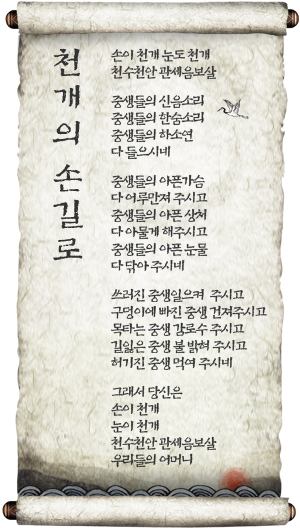 천개의 손길로
손이 천개 눈도 천개
천수천안 관세음보살
중생들의 신음소리
중생들의 한숨소리
중생들의 하소연
다 들으시네
중생들의 아픈가슴
다 어루만져 주시고
중생들의 아픈 상처
다 아물게 해주시고
중생들의 아픈 눈물
다 닦아 주시네
쓰러진 중생일으켜 주시고
구덩이에 빠진 중생 건져주시고
목타는 중생 감로수 주시고
길잃은 중생 불 밝혀 주시고
허기진 중생 먹여 주시네
그래서 당신은
손이 천개
눈이 천개
천수천안 관세음보살
우리들의 어머니